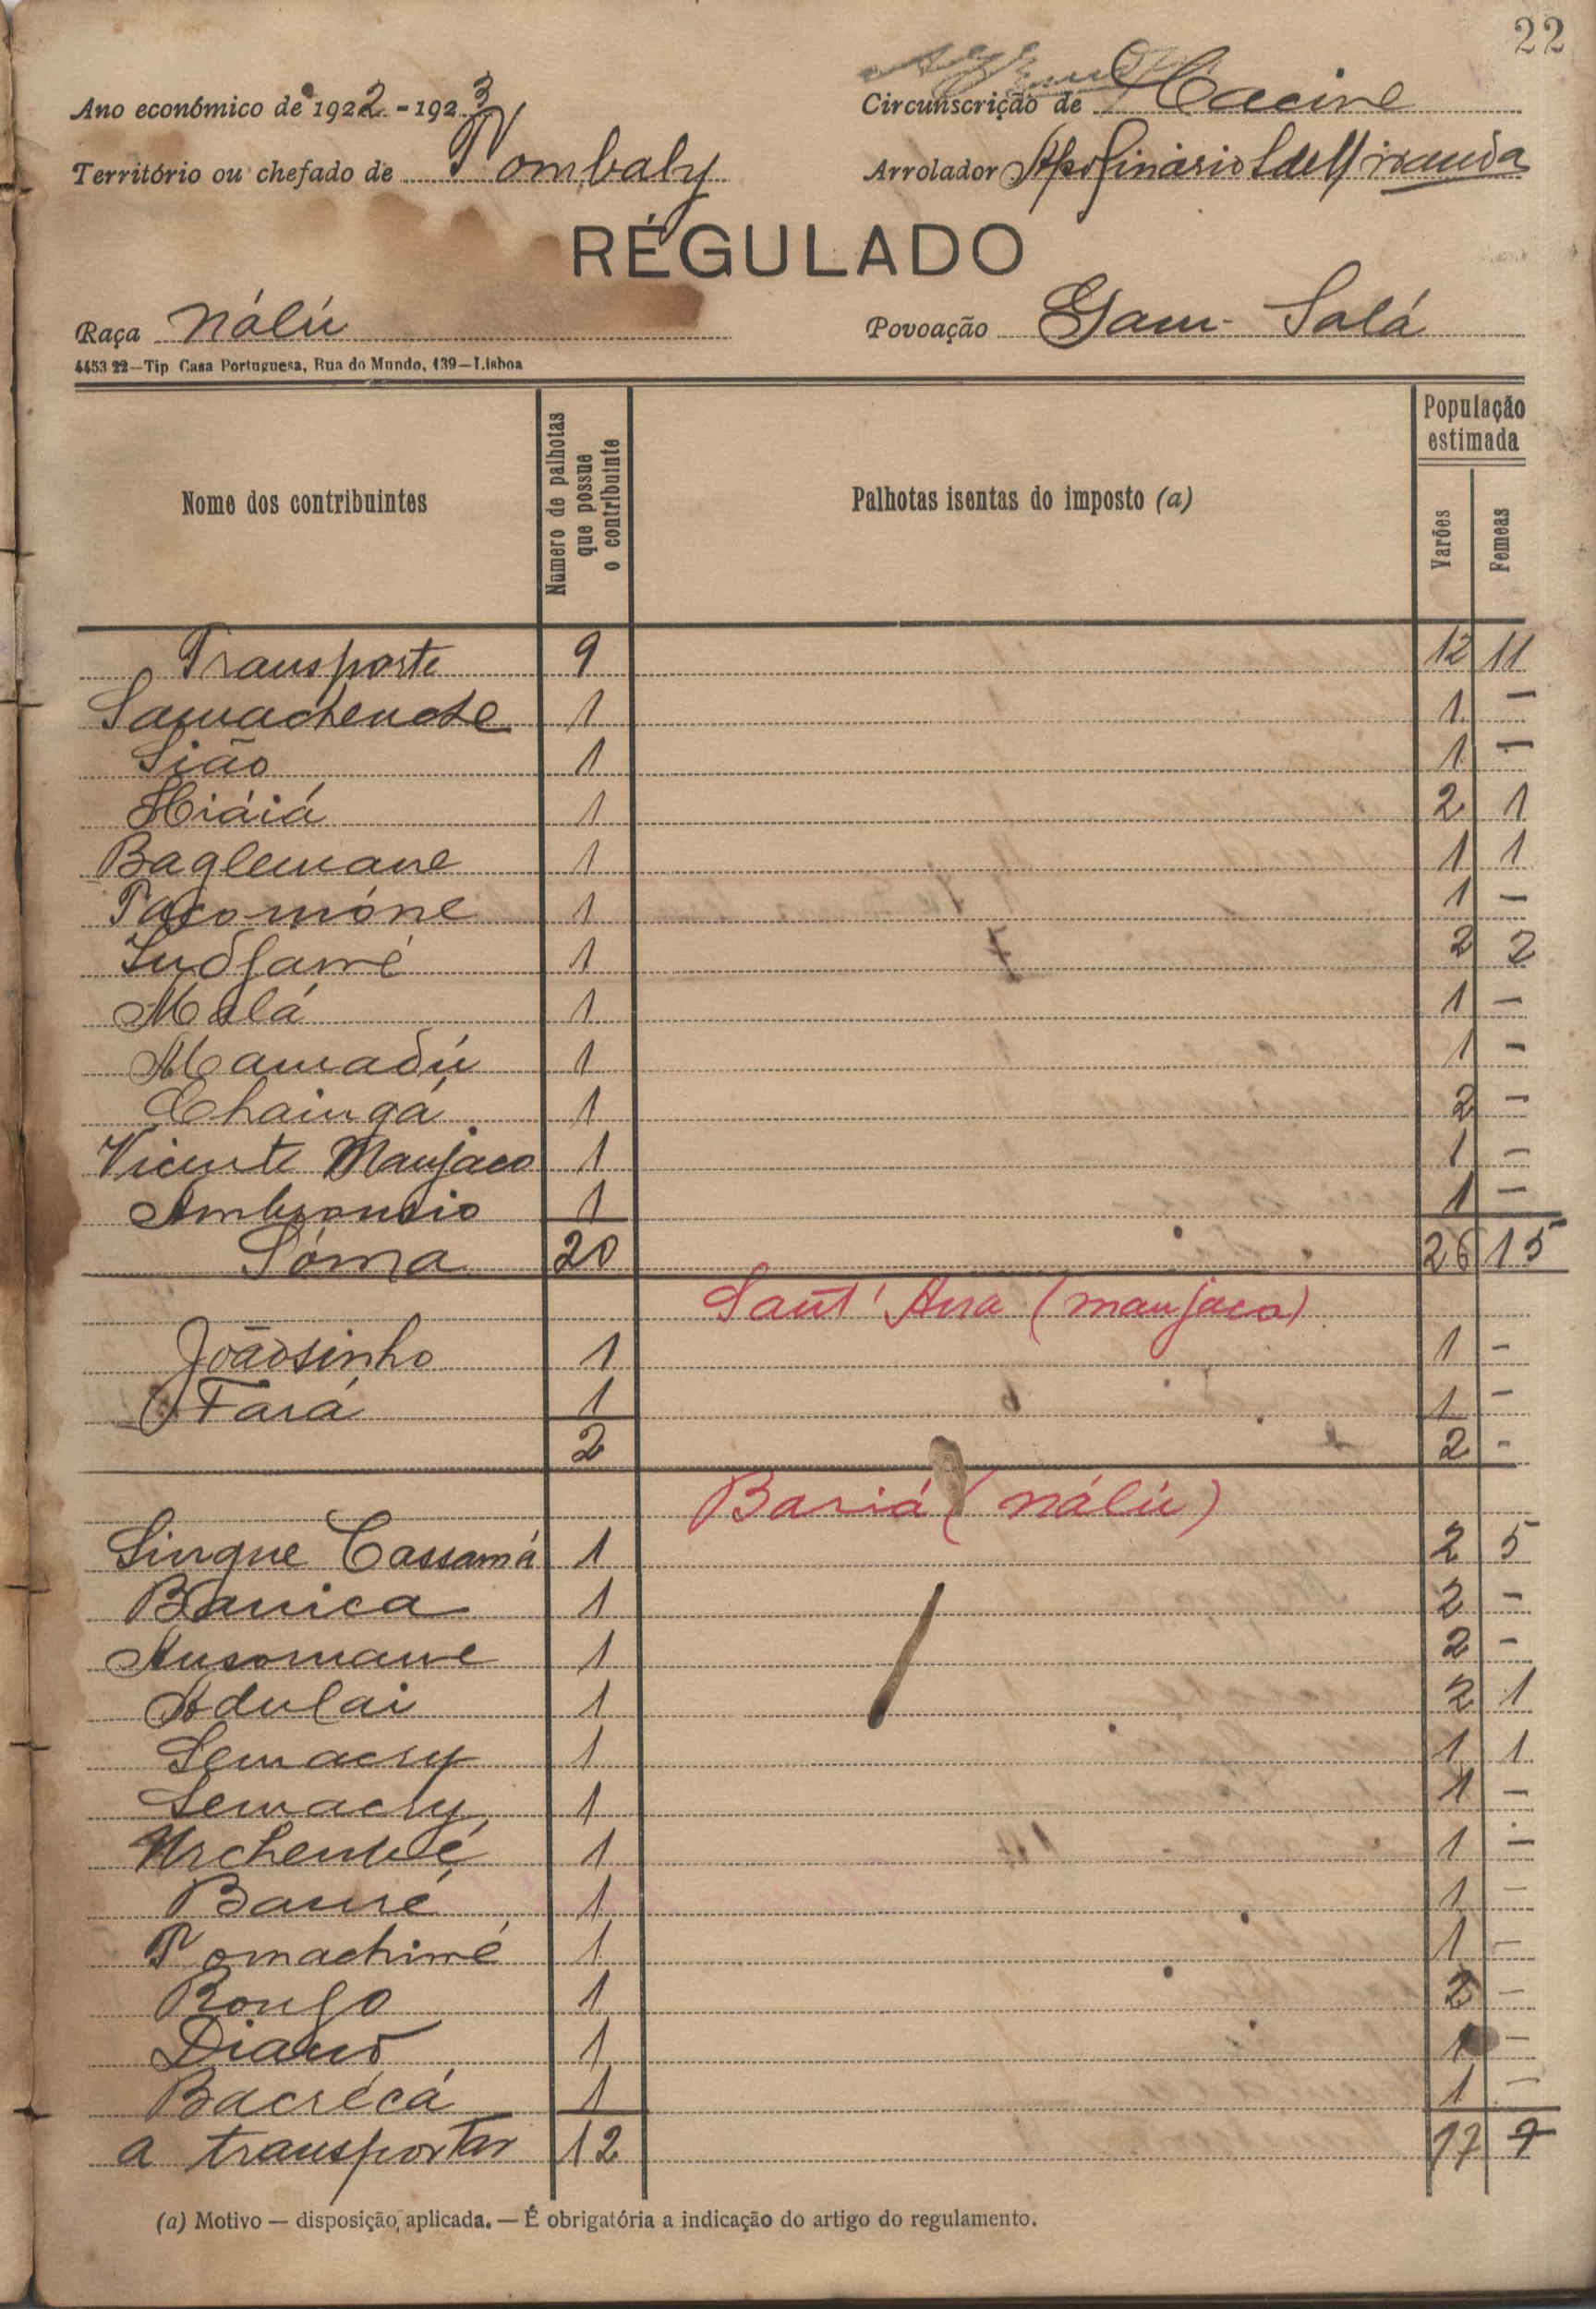 22
Ano económico de 1922-1923 Circunscrição de Cacine
Território ou chefado de Tombaly Arrolador Apolinário
REGULADO
Raça Nálú Povoação Gam-Salá
4453 22—Tip Casa Portuguesa, Rua do Mundo, 139—Lisboa
Nome dos contribuintes Número de palhotas que possue o contribuinte Palhotas isentas do imposto (a) População estimada Varões Femeas
Transporte 9 12 11
Samachenote 1 1 —
Sião 1 1 —
Hiáiá 1 2 1
Baglemane 1 1 1
Tacomóne 1 1 —
1 2 2
Malá 1 1 —
Mamadú 1 1 —
Chaingá 1 2 —
Vicente Manjaco 1 1 —
Ambronsio 1 1 —
Sóma 20 26 15
Sant'Ana (manjaco)
Joãosinho 1 1 -
Fará 1 1 -
2 2 -
Bariá (nálú)
Singue Cassamá 1 2 5
Banica 1 2 -
Ansomane 1 2 -
Adulai 1 2 1
Semacry 1 1 1
Semacry 1 1 -
1 1 —
Banré 1 1 —
Tomachimé 1 1 —
Bongo 1 2 —
1 1 —
Bacrécá 1 1 —
a transportar 12 17 7
(a) Motivo — disposição, aplicada. — É obrigatória a indicação do artigo do regulamento.